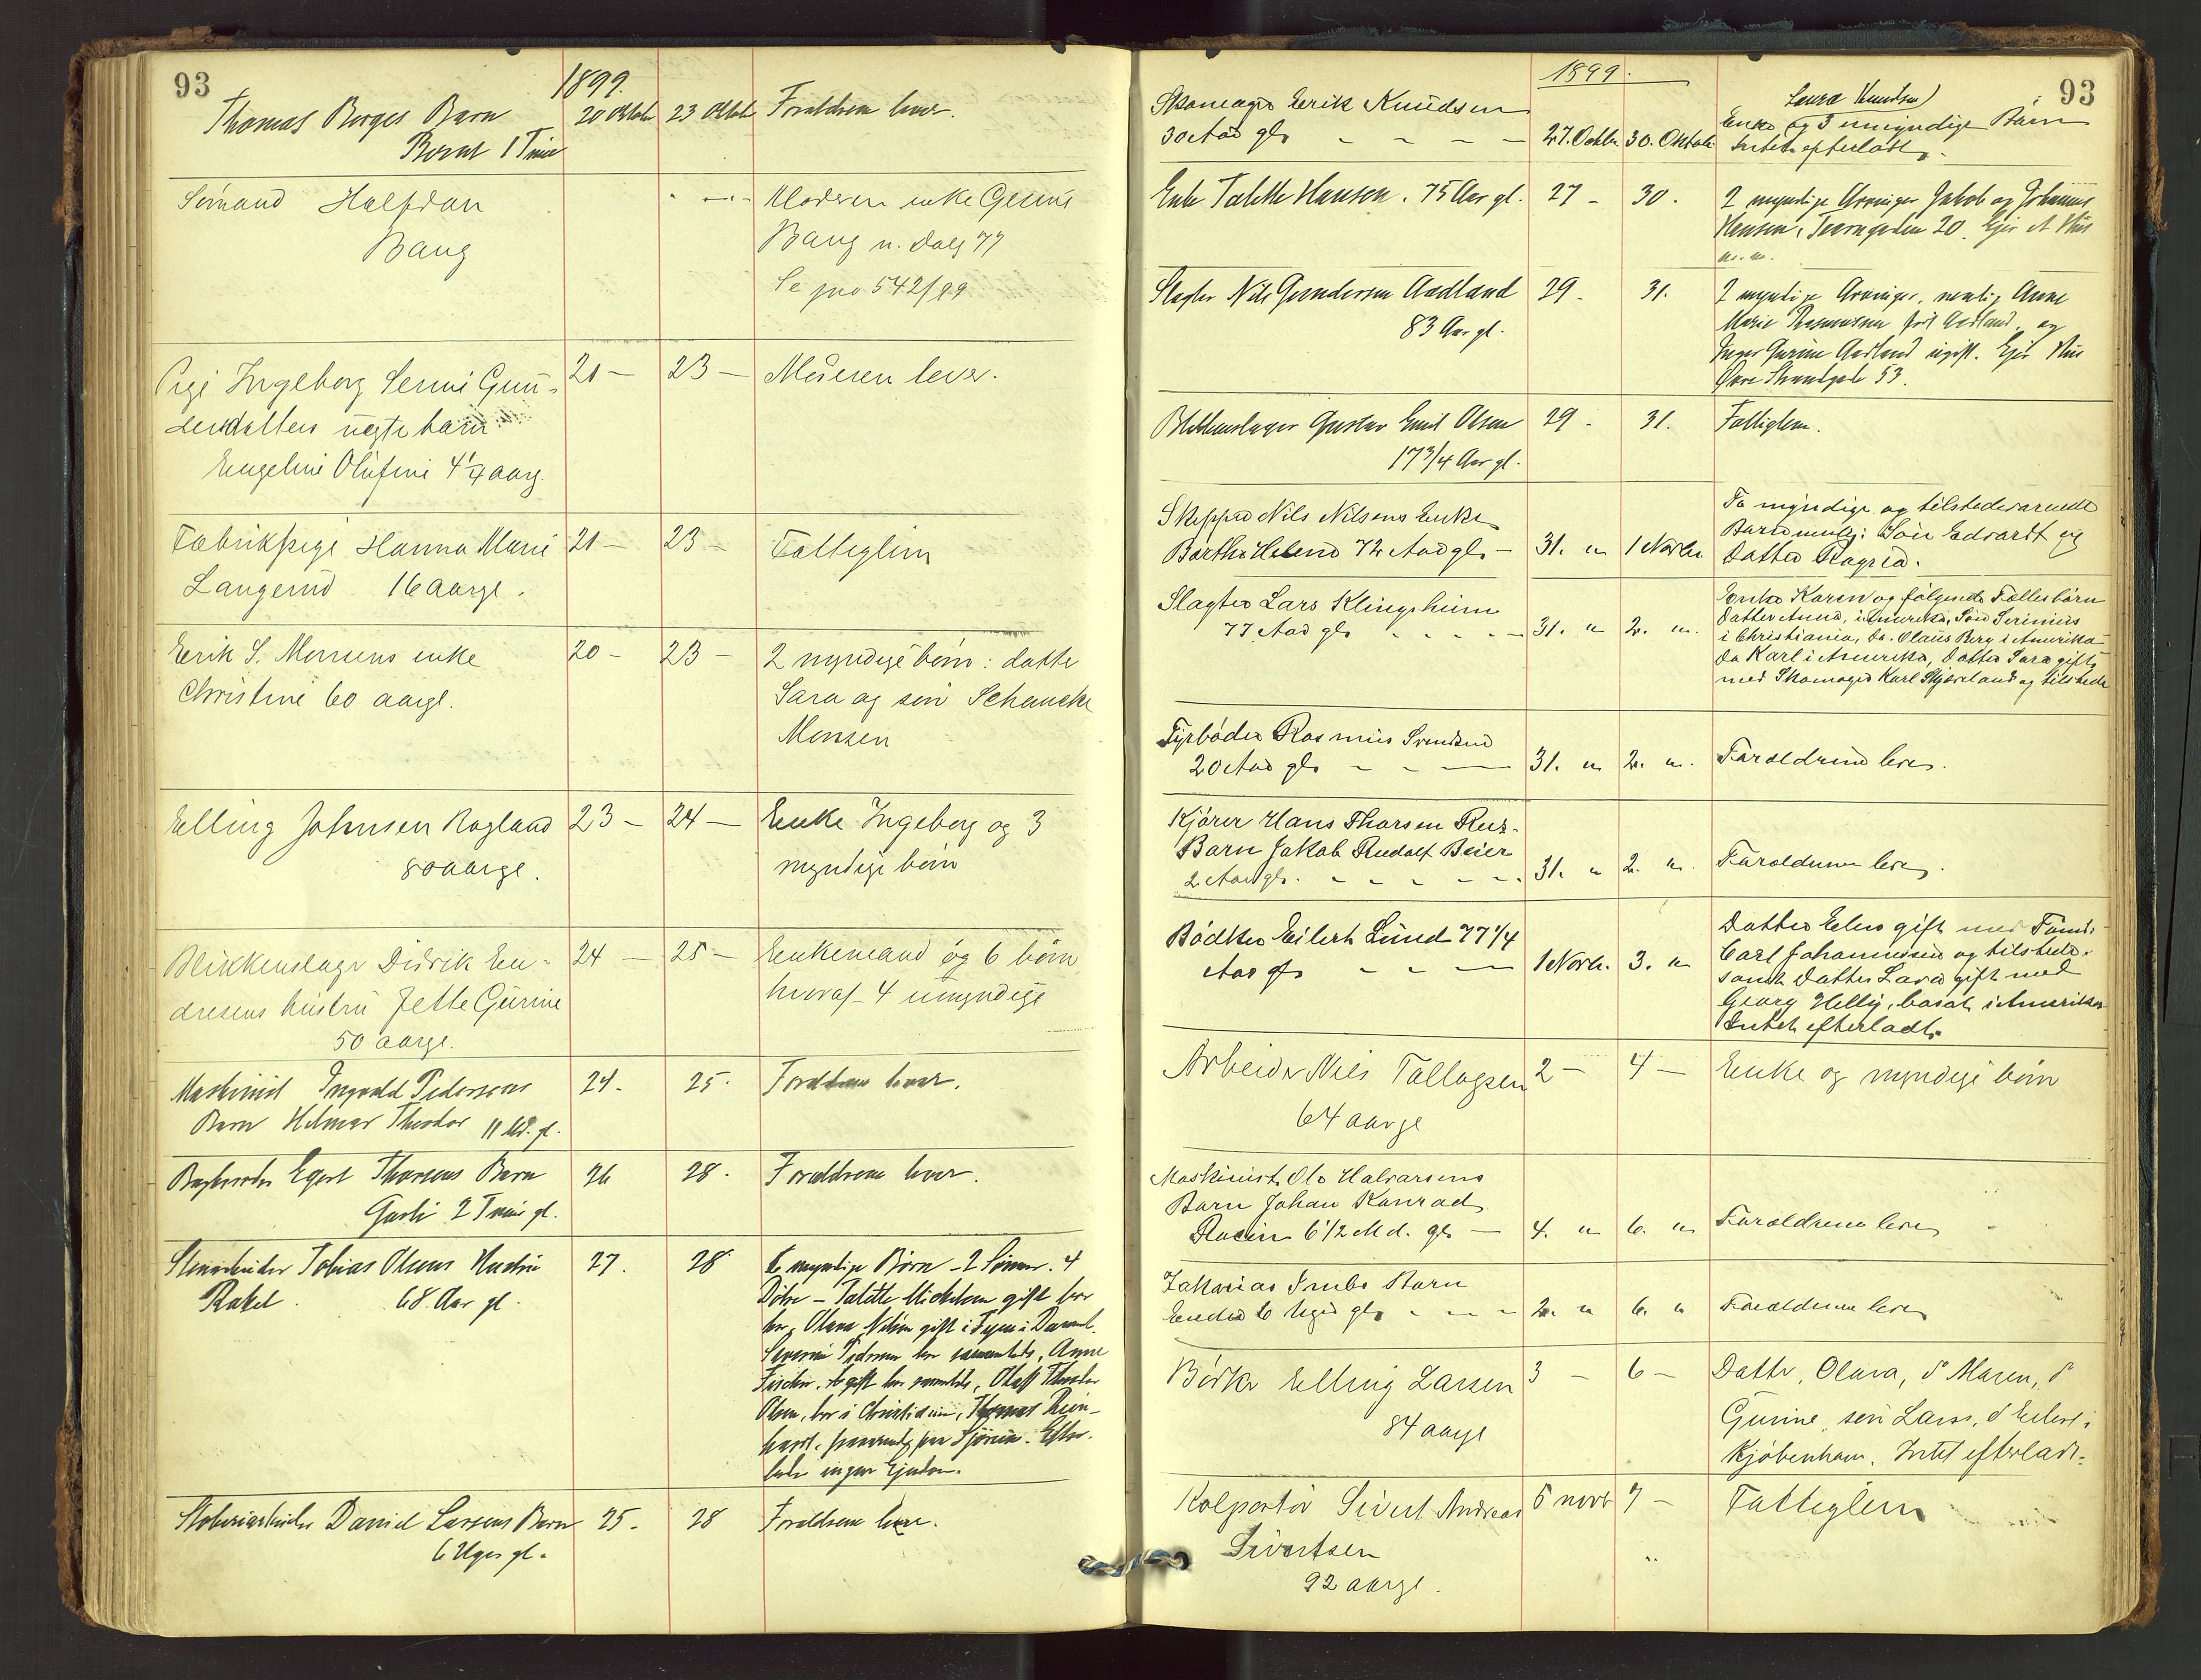 93
1899.
Thomas Borges Barn 20 Oktobr 23 Oktobr Forældrene lever.
Barnet 1 Time
Sømand Halfdan Moderen enke Gurine
Bang Bang n. Dalg 77
Se jno 542/99
Pige Ingeborg Serine Gun- 21 – 23 – Moderen lever.
dersdatters uægte barn
Engeline Olufine 4 1/4 aarg.
Fabrikpige Hanna Marie 21 – 23 – Fattiglem
Langerud 16 aargl.
Erik S. Monsens enke 20 – 23 – 2 myndige børn: datter
Christine 60 aargl. Sara og søn Schancke
Monsen
Elling Johnsen Rogland 23 – 24 – Enke Ingeborg og 3
80 aargl. myndige børn
Blikkenslager Didrik En- 24 – 25 – Enkemand og 6 børn
dresens hustru Jette Gurine hvoraf 4 umyndige
50 aargl.
Maskinist Ingvald Pedersens 24. 25. Forældrene lever.
Barn Hilmar Theodor 11 Md. gl.
Egert Thorsens Barn 26 28. Forældrene lever.
2 Timer gl.
Stenarbeider Tobias Olsens Hustru 27. 28. 6 myndige Børn – 2 Sønner. 4
Rakel. 68 Aar gl. Døtre – Talette Mickelsen gift bor
her, Olava Nilsen gift i Fyen i Danmk.
Severine Pedersen bor sammesteds, Anne
Fischer, gift bor sammesteds, Olaff Theodor
Olsen, bor i Christiania, Thomas Rein-
hardt, paa Sjøreise. Efter-
lader ingen Eiendom.
Daniel Larsens Barn 25. 28 Forældrene lever.
6 Uger gl.
1899.
93
Skomager Erik Knudsen Laura Knudsen
30 Aar gl. 27. Octobr. 30. Oktobr. Enke og 3 umyndige Børn
Intet efterladt.
Enke Talette Hansen. 75 Aar gl. 27 – 30. 2 myndige Arvinger Jakob og Johannes
Hansen, 20. Ejer et Hus
m. m.
Slagter Nils Gundersen Aadland 29. 31. 2 myndige Arvinger, nemlig Anne
83 Aar gl. Marie Rasmussen født Aadland, og
Inger Gurine Aadland ugift. Ejer Hus
Øvre Strandgade 53.
Blikkenslager Gustav Emil Olsen 29. 31. Fattiglem.
17 3/4 Aar gl.
Skipper Nils Nilsens Enke To myndige og tilstedeværende
Barthe Helene 72 Aar gl. – 31. " 1 Novbr. Børn nemlig: Søn Edvardt og
Datter Ragna.
Slagter Lars Klingsheim Enke Karen og følgende Fællesbørn
77 Aar gl. 31. " 2. " Datter Anna, i Amerika, Søn Serinius
i Christiania, do. Olaus Berg i Amerika
do Karl i Amerika, Datter Sara gift
med Skomager Karl Skjæveland og tilstede
Fyrbøder Rasmus Svendsen
20 Aar gl. 31. " 2. " Forældrene lever.
Kjører Hans Thorsen
Barn Jakob Rudolf Beier
2 Aar gl. 31. " 2. " Forældrene lever.
Bødker Eilert Lund 77 1/4 Datter Elen gift med
Aar gl. 1 Novbr. 3. " Carl Johannesen og tilstede
samt Datter Lava gift med
Georg Helly, bosat i Amerika
Intet efterladt.
Arbeider Nils Tollagsen 2 – 4 – Enke og myndige børn
64 aargl
Maskinist Ole Halvarsens
Barn Johan Konrad
6 1/2 Md. gl. – 4. " 6. " Forældrene lever
Zakarias Barn
6 Uger gl. 2. " 6. " Forældrene lever
Bødker Elling Larsen 3 – 6 – Datter, Olava, do Maren, do
84 aargl Gurine, søn Lars, do Eilert i
Kjøbenhavn. Intet efterladt.
Kolportør Sivert Andreas 5 novb 7 – Fattiglem
Sivertsen
92 aargl.